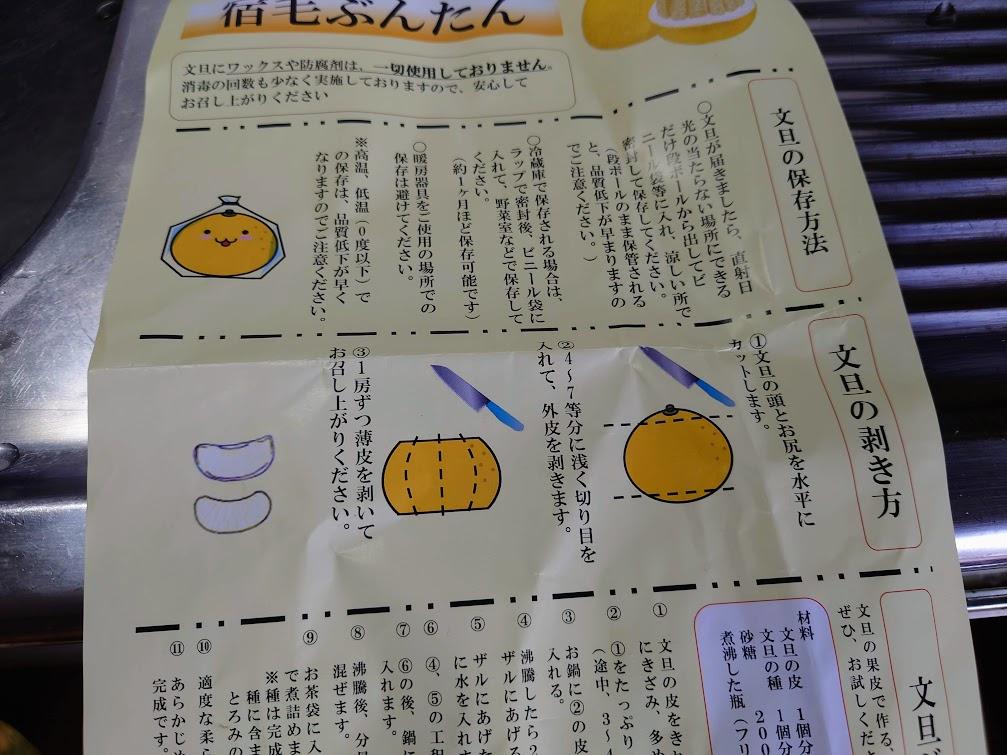 宿毛ぶんたん
文旦にワックスや防腐剤は、一切使用しておりません。
消毒の回数も少なく実施しておりますので、安心して
お召し上がりください
文旦の保存方法
○文旦が届きましたら、直射日
光の当たらない場所にできる
だけ段ボールから出してビ
ニール袋等に入れ、涼しい所で
密封して保存してください。
（段ボールのまま保管される
と、品質低下が早まりますの
でご注意ください。）
○冷蔵庫で保存される場合は、
ラップで密封後、ビニール袋に
入れて、野菜室などで保存して
ください。
（約1ヶ月ほど保存可能です）
○暖房器具をご使用の場所での
保存は避けてください。
※高温、低温（0度以下）で
の保存は、品質低下が早く
なりますのでご注意ください。
文旦の剥き方
①文旦の頭とお尻を水平に
カットします。
②4～7等分に浅く切り目を
入れて、外皮を剥きます。
③1房ずつ薄皮を剥いて
お召し上がりください。
文旦
文旦の果皮で作る、
ぜひ、お試しくだ
材料
文旦の皮 1個分
文旦の種 1個分
砂糖 200
煮沸した瓶（フリ
① 文旦の皮をき
にきざみ、多め
② ①をたっぷり
（途中、3～4
③ お鍋に②の皮
入れる。
④ 沸騰したら2
ザルにあげる
⑤ ザルにあげた
に水を入れ
⑥ ④、⑤の工程
⑦ ⑥の後、鍋に
入れます。
⑧ 沸騰後、分量
混ぜます。
⑨ お茶袋に入
で煮詰めま
※種は完成
種に含ま
とろみの
⑩ 適度な柔ら
⑪ あらかじめ
完成です。